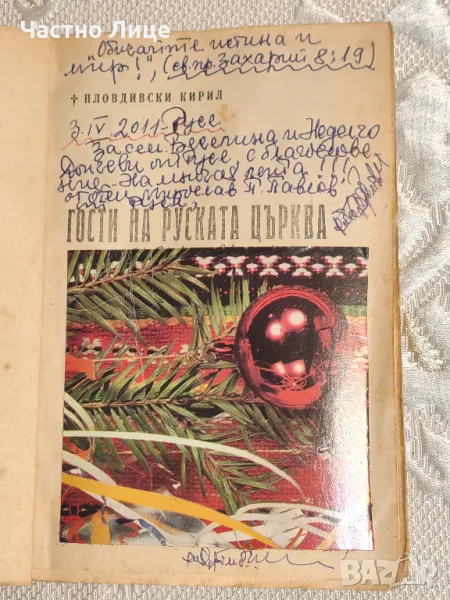 Частно Лице
"Обичайте истина и
мир!", (св. пр. Захарий 8:19)
† ПЛОВДИВСКИ КИРИЛ
3.IV.2011 Русе
За сем. Веселина и Неделчо
Дончеви от Русе, с благослове
ние - На многая лета!!!
отец Мирослав П. Павлов
Русе,
ГОСТИ НА РУСКАТА ЦЪРКВА
bazar